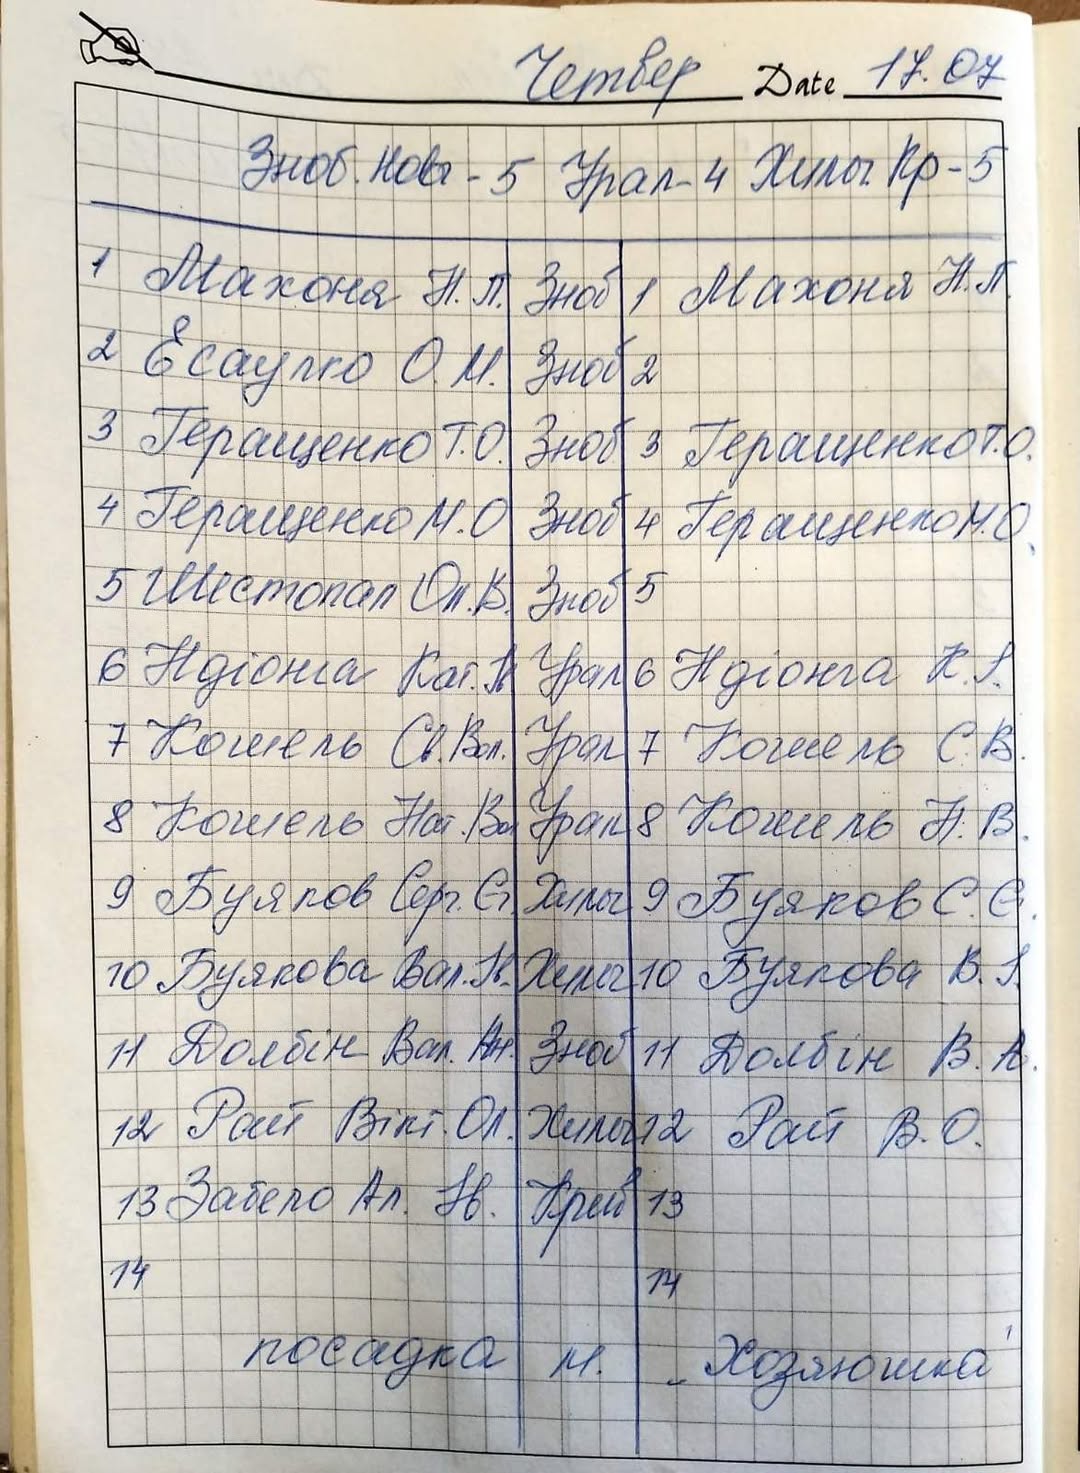 Четвер Date 17.07
Зноб. Нов - 5 Урал - 4 Хильч. Кр - 5
1 Махоня Н.П. Зноб 1 Махоня Н.П.
2 Єсаулко О.М. Зноб 2
3 Геращенко Т.О. Зноб 3 Геращенко Т.О.
4 Геращенко М.О Зноб 4 Геращенко М.О.
5 Шестопал Ол.В. Зноб 5
6 Ндіонга Кат. Урал 6 Ндіонга К.І.
7 Кошель Св.Вол. Урал 7 Кошель С.В.
8 Кошель Нат.Вол Урал 8 Кошель Н.В.
9 Буяков Серг.Єг. Хильч 9 Буяков С.Є.
10 Буякова Вал.Ів. Хильч 10 Буякова В.І.
11 Долбін Вал. Ан. Зноб 11 Долбін В.А.
12 Рай Вікт.Ол. Хильч 12 Рай В.О.
13 Забело Ал. Ів. 13
14 14
посадка м. Хозяюшка